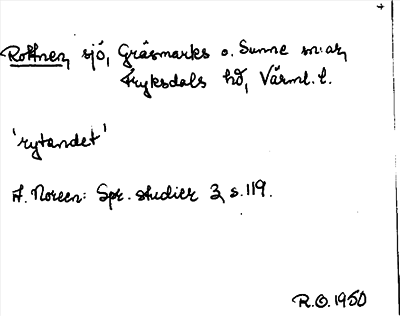 Rottnen, sjö, Gräsmarks o. Sunne sn:ar,
Fryksdals hd, Värml. l.
'rytandet'
A. Noreen: Spr. studier 3, s. 119.
R.O. 1950